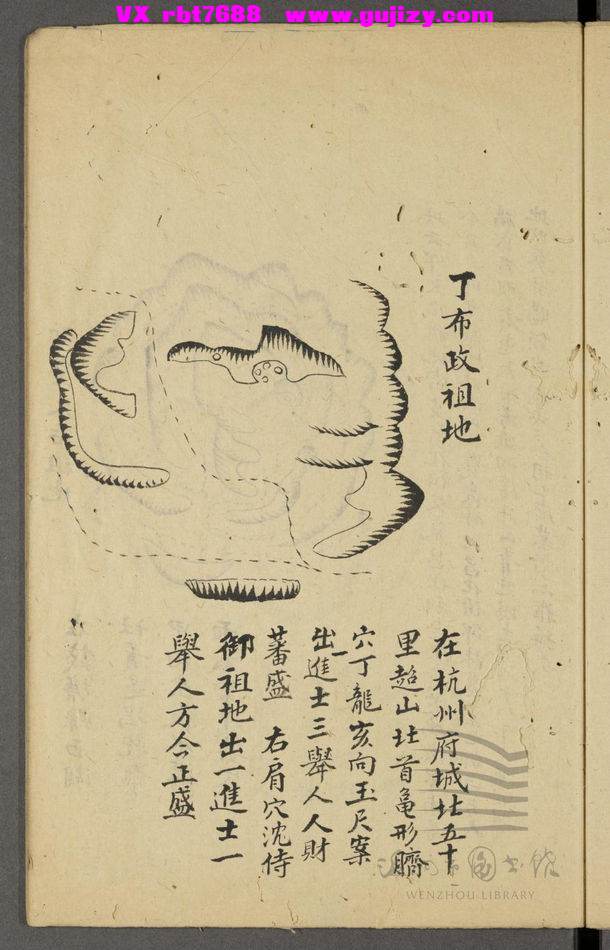 VX rbt7688 www.gujizy.com
丁布政祖地
在杭州府城北五十
里超山北首龜形臍
穴丁龍亥向玉尺案
出一進士三舉人人財
蕃盛 右肩穴沈侍
御祖地出一進士一
舉人方今正盛
温州市圖书馆
WENZHOU LIBRARY